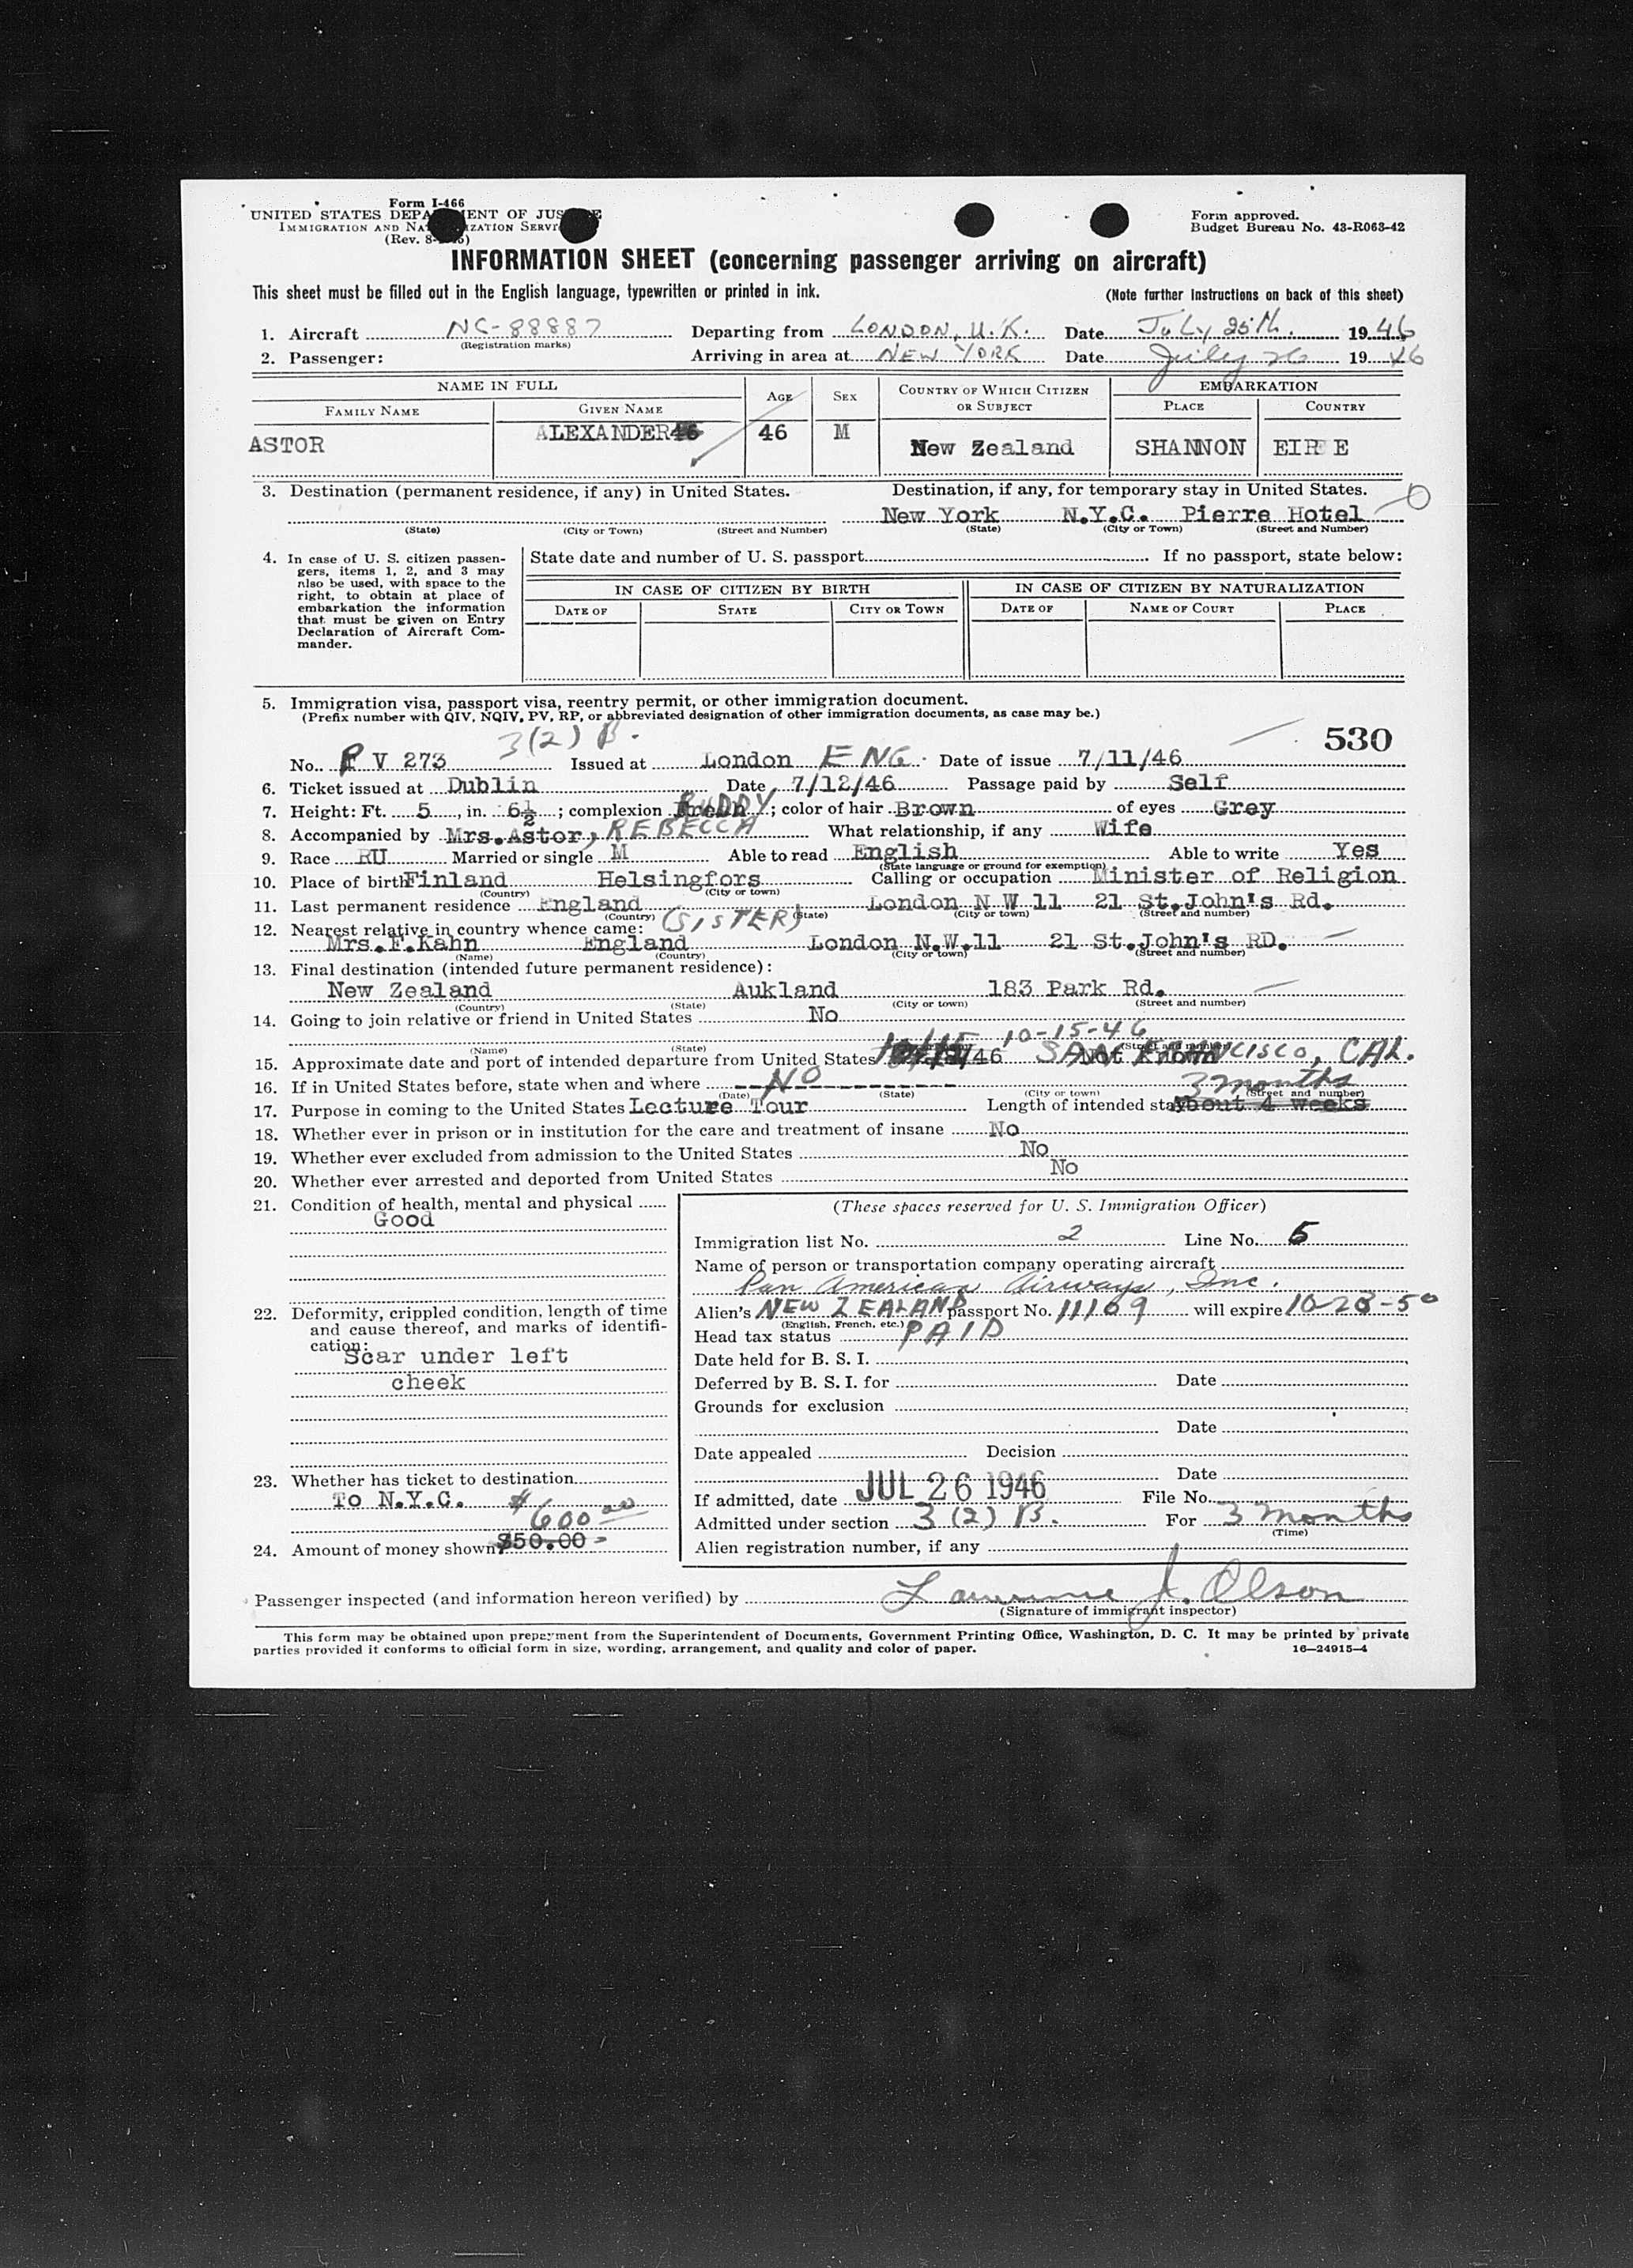 Form I-466
UNITED STATES DEPARTMENT OF JUSTICE
IMMIGRATION AND NATURALIZATION SERVICE
(Rev. 8-
Form approved.
Budget Bureau No. 43-R063-42
INFORMATION SHEET (concerning passenger arriving on aircraft)
This sheet must be filled out in the English language, typewritten or printed in ink. (Note further instructions on back of this sheet)
1. Aircraft NC-88887 Departing from LONDON, U.K. Date July 25th. 1946
(Registration marks)
2. Passenger: Arriving in area at NEW YORK Date July 26 1946
NAME IN FULL AGE SEX COUNTRY OF WHICH CITIZEN OR SUBJECT EMBARKATION
FAMILY NAME GIVEN NAME PLACE COUNTRY
ASTOR ALEXANDER 46 M New Zealand SHANNON EIRE
3. Destination (permanent residence, if any) in United States. Destination, if any, for temporary stay in United States.
New York N.Y.C. Pierre Hotel
(State) (City or Town) (Street and Number) (State) (City or Town) (Street and Number)
4. In case of U. S. citizen passengers, items 1, 2, and 3 may also be used, with space to the right, to obtain at place of embarkation the information that must be given on Entry Declaration of Aircraft Commander.
State date and number of U. S. passport If no passport, state below:
IN CASE OF CITIZEN BY BIRTH IN CASE OF CITIZEN BY NATURALIZATION
DATE OF STATE CITY OR TOWN DATE OF NAME OF COURT PLACE
5. Immigration visa, passport visa, reentry permit, or other immigration document.
(Prefix number with QIV, NQIV, PV, RP, or abbreviated designation of other immigration documents, as case may be.)
3(2) B. 530
No. P V 273 Issued at London ENG. Date of issue 7/11/46
6. Ticket issued at Dublin Date 7/12/46 Passage paid by Self
7. Height: Ft. 5, in. 6½; complexion RUDDY; color of hair Brown of eyes Grey
8. Accompanied by Mrs. Astor, REBECCA What relationship, if any Wife
9. Race RU Married or single M Able to read English Able to write Yes
(State language or ground for exemption)
10. Place of birth Finland Helsingfors Calling or occupation Minister of Religion
(Country) (City or town)
11. Last permanent residence England London N W 11 21 St. John's Rd.
(Country) (State) (City or town) (Street and number)
12. Nearest relative in country whence came: (SISTER)
Mrs. F. Kahn England London N.W.11 21 St. John's RD.
(Name) (Country) (City or town) (Street and number)
13. Final destination (intended future permanent residence):
New Zealand Aukland 183 Park Rd.
(Country) (State) (City or town) (Street and number)
14. Going to join relative or friend in United States No
10-15-46
(Name) (State) (Street and number)
15. Approximate date and port of intended departure from United States 10/15/46 Not Known SAN FRANCISCO, CAL.
16. If in United States before, state when and where NO
(Date) (State) (City or town) (Street and number)
3 months
17. Purpose in coming to the United States Lecture Tour Length of intended stay About 4 weeks
18. Whether ever in prison or in institution for the care and treatment of insane No
19. Whether ever excluded from admission to the United States No
20. Whether ever arrested and deported from United States No
21. Condition of health, mental and physical
Good
22. Deformity, crippled condition, length of time and cause thereof, and marks of identification:
Scar under left
cheek
23. Whether has ticket to destination
To N.Y.C.
$600 00
24. Amount of money shown $50.00
(These spaces reserved for U. S. Immigration Officer)
Immigration list No. 2 Line No. 5
Name of person or transportation company operating aircraft
Pan American Airways, Inc.
Alien's NEW ZEALAND passport No. 11169 will expire 10-28-50
(English, French, etc.)
Head tax status PAID
Date held for B. S. I.
Deferred by B. S. I. for Date
Grounds for exclusion
Date
Date appealed Decision
Date
If admitted, date JUL 26 1946 File No.
Admitted under section 3 (2) B. For 3 months
(Time)
Alien registration number, if any
Passenger inspected (and information hereon verified) by Lawrence J. Olson
(Signature of immigrant inspector)
This form may be obtained upon prepayment from the Superintendent of Documents, Government Printing Office, Washington, D. C. It may be printed by private
parties provided it conforms to official form in size, wording, arrangement, and quality and color of paper. 16—24915-4